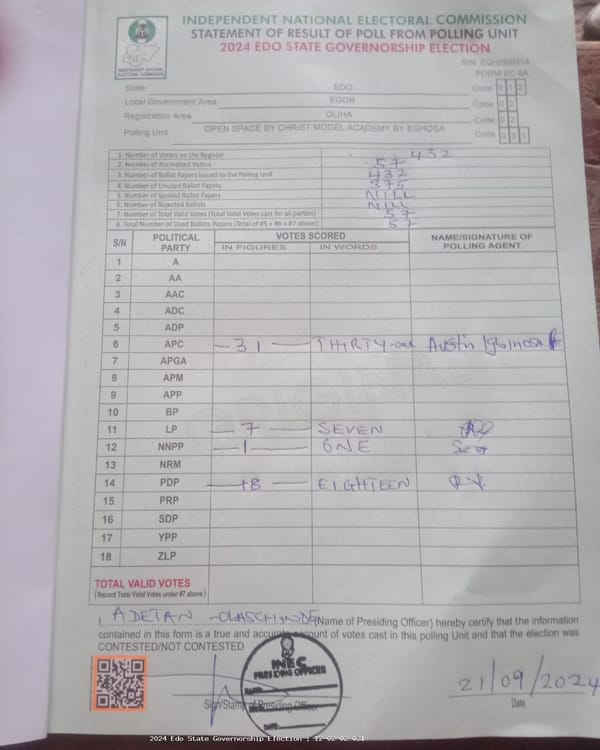 INDEPENDENT NATIONAL ELECTORAL COMMISSION
STATEMENT OF RESULT OF POLL FROM POLLING UNIT
2024 EDO STATE GOVERNORSHIP ELECTION
INEC
INDEPENDENT NATIONAL ELECTORAL COMMISSION
S/N: EG/0000314
FORM EC 8A
State EDO Code 0 1 2
Local Government Area EGOR Code 0 2
Registration Area OLIHA Code 0 2
Polling Unit OPEN SPACE BY CHRIST MODEL ACADEMY BY EGHOSA Code 0 3 1
1. Number of Voters on the Register 432
2. Number of Accredited Voters 57
3. Number of Ballot Papers Issued to the Polling Unit 432
4. Number of Unused Ballot Papers 375
5. Number of Spoiled Ballot Papers NILL
6. Number of Rejected Ballots NILL
7. Number of Total Valid Votes (Total Valid Votes cast for all parties) 57
8. Total Number of Used Ballots Papers (Total of #5 + #6 + #7 above) 57
S/N POLITICAL PARTY VOTES SCORED NAME/SIGNATURE OF POLLING AGENT
IN FIGURES IN WORDS
1 A
2 AA
3 AAC
4 ADC
5 ADP
6 APC 31 THIRTY-one Austin Igbinosa
7 APGA
8 APM
9 APP
10 BP
11 LP 7 SEVEN
12 NNPP 1 ONE
13 NRM
14 PDP 18 EIGHTEEN
15 PRP
16 SDP
17 YPP
18 ZLP
TOTAL VALID VOTES
(Record Total Valid Votes under #7 above)
I, ADETAN (Name of Presiding Officer) hereby certify that the information
contained in this form is a true and accurate account of votes cast in this polling Unit and that the election was
CONTESTED/NOT CONTESTED
INEC
PRESIDING OFFICER
NAME
DATE
Sign/Stamp of Presiding Officer
21/09/2024
Date
2024 Edo State Governorship Election : 12-02-02-031